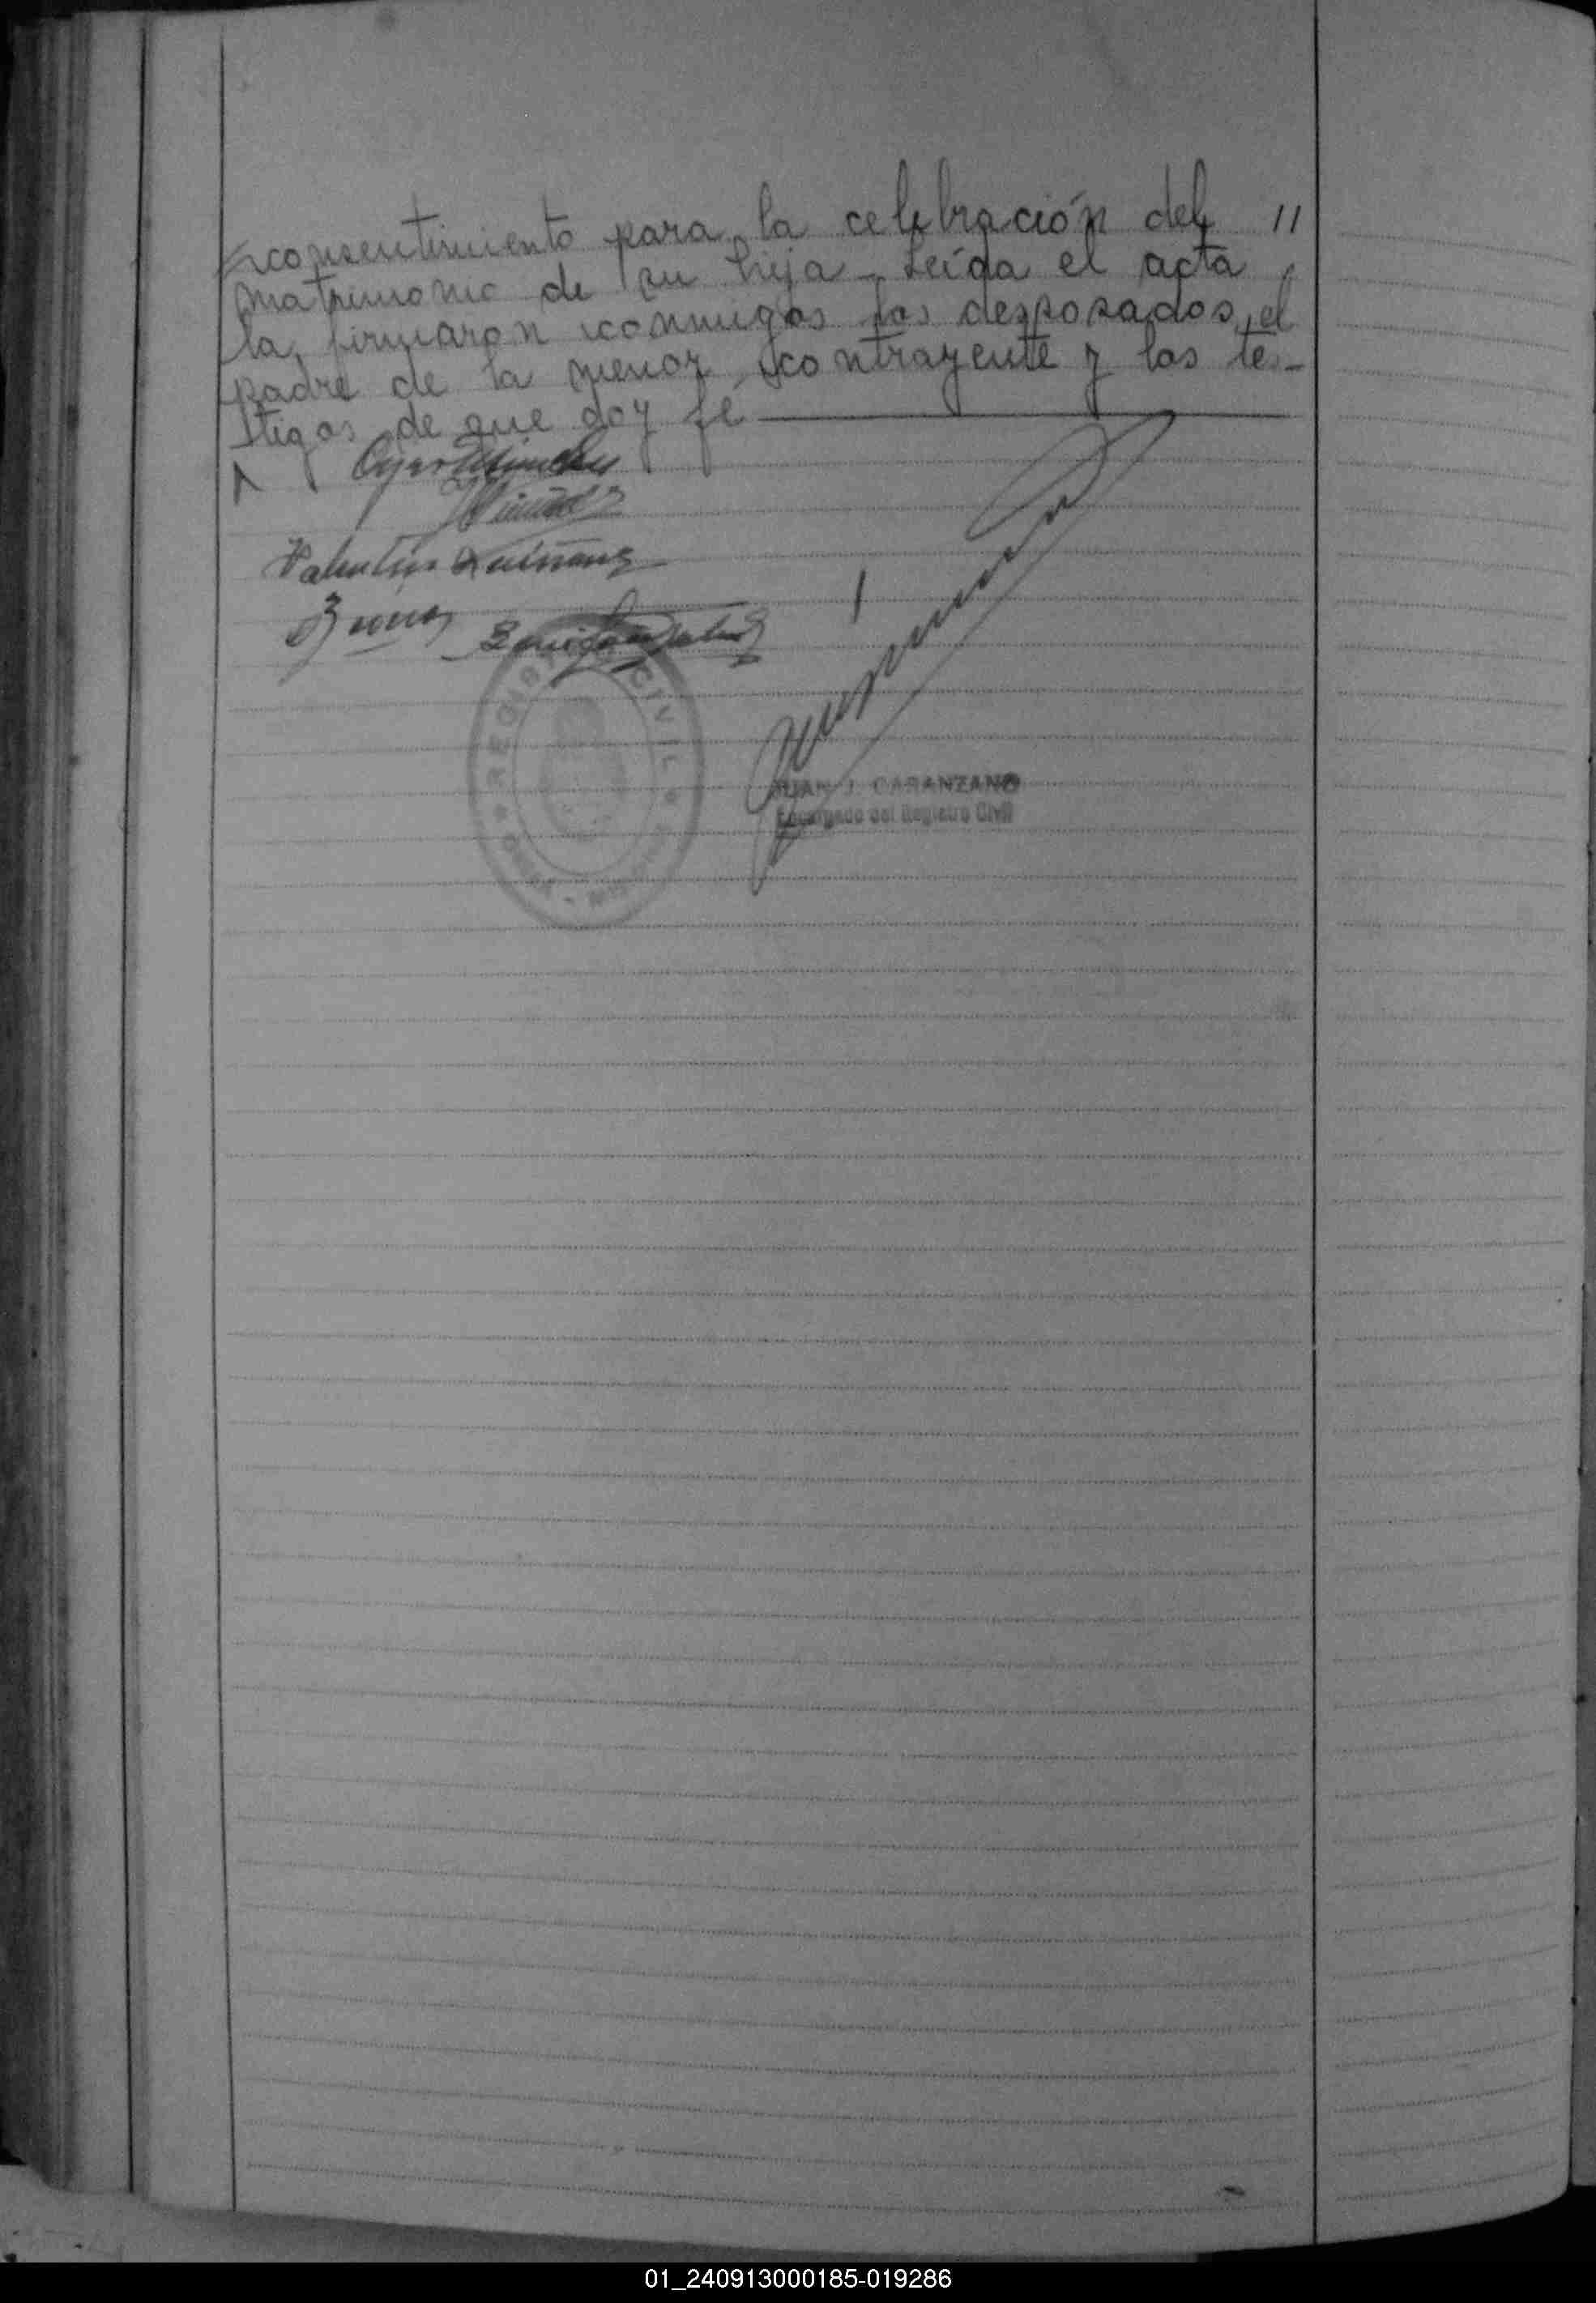 consentimiento para la celebración del 11
matrimonio de su hija - Leída el acta,
la firmaron conmigo los desposados, el
padre de la menor contrayente y los te-
stigos de que doy fe
Valentin
REGISTRO CIVIL
JUAN J. CARANZANO
Encargado del Registro Civil
01_240913000185-019286